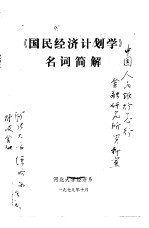 《国民经济计划学》
名词简解
中国人民银行总行
金融研究所资料室
河北大学经济系
一九七九年十月